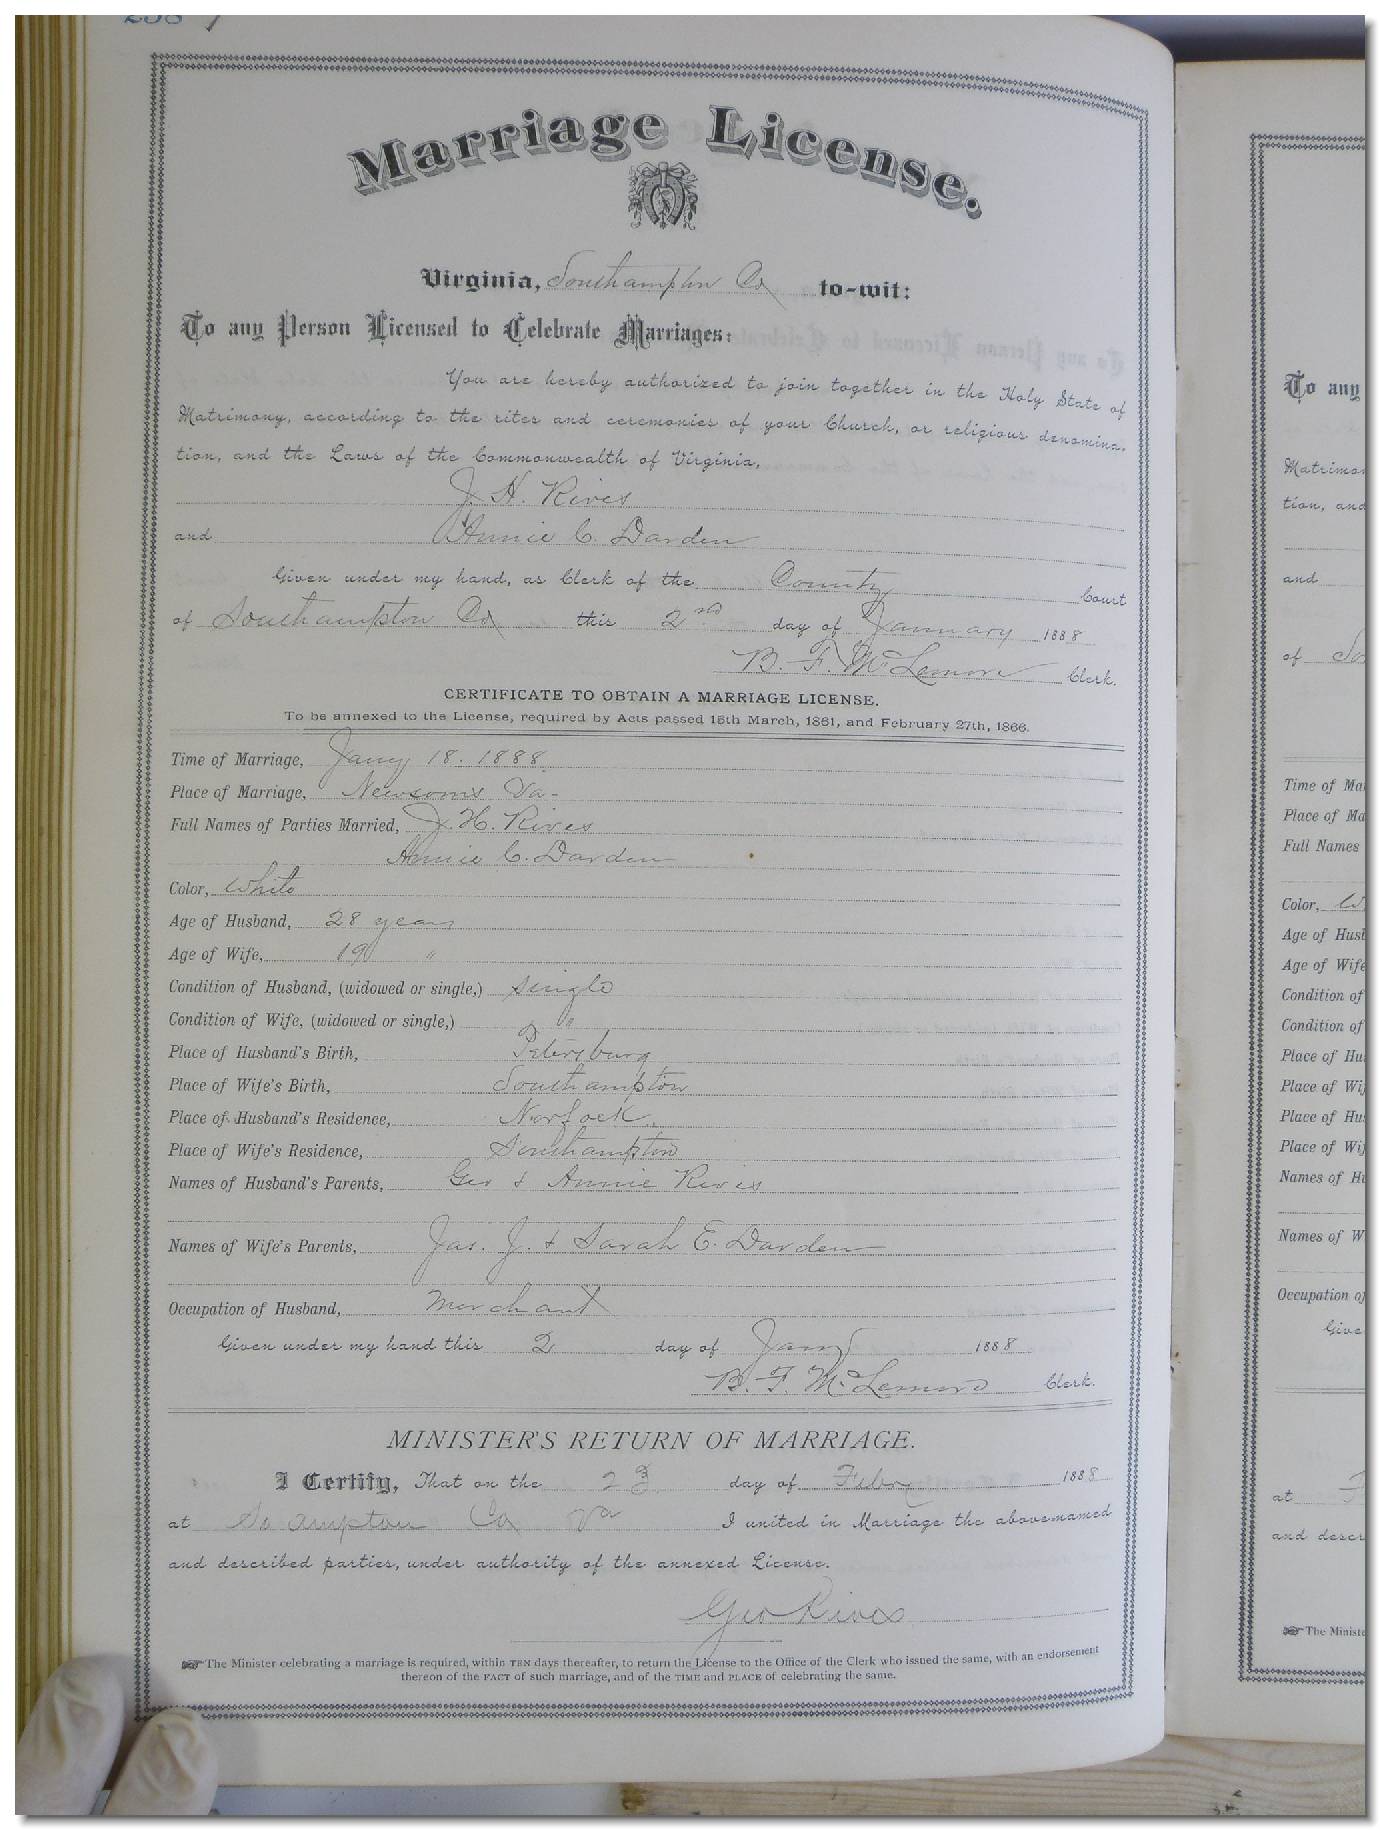 Marriage License.
Virginia, Southampton Co to-wit:
To any Person Licensed to Celebrate Marriages:
You are hereby authorized to join together in the Holy State of
Matrimony, according to the rites and ceremonies of your Church, or religious denomina-
tion, and the Laws of the Commonwealth of Virginia,
J. H. Rives
and Annie C. Darden
Given under my hand, as Clerk of the County Court
of Southampton Co this 2nd day of January 1888
B. F. McLemore Clerk.
CERTIFICATE TO OBTAIN A MARRIAGE LICENSE.
To be annexed to the License, required by Acts passed 15th March, 1861, and February 27th, 1866.
Time of Marriage, Jany 18. 1888
Place of Marriage, Newsoms Va-
Full Names of Parties Married, J. H. Rives
Annie C. Darden
Color, White
Age of Husband, 28 years
Age of Wife, 19 "
Condition of Husband, (widowed or single,) single
Condition of Wife, (widowed or single,) "
Place of Husband's Birth, Petersburg
Place of Wife's Birth, Southampton
Place of Husband's Residence, Norfock
Place of Wife's Residence, Southampton
Names of Husband's Parents, Geo & Annie Rives
Names of Wife's Parents, Jas. J. & Sarah E. Darden
Occupation of Husband, Merchant
Given under my hand this 2 day of Jany 1888
B. F. McLemore Clerk.
MINISTER'S RETURN OF MARRIAGE.
I Certify, That on the 23 day of Febry 1888
at So ampton Co Va I united in Marriage the abovenamed
and described parties, under authority of the annexed License.
Geo Rives
The Minister celebrating a marriage is required, within TEN days thereafter, to return the License to the Office of the Clerk who issued the same, with an endorsement
thereon of the FACT of such marriage, and of the TIME and PLACE of celebrating the same.
To any
tion, and
and
of So
Place of Ma
Full Names
Color, W
Age of Wife
Condition of
Condition of
Place of Hu
Place of Wi
Place of Hus
Place of Wi
Names of H
Names of W
Occupation of
Give
at
and descr
The Ministe